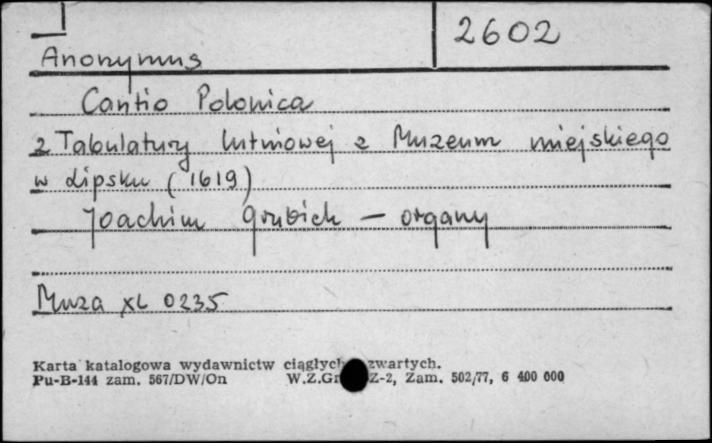 2602
Anonymus
Cantio Polonica
z Tabulatury lutniowej z Muzeum miejskiego
w Lipsku (1619)
Joachim Grubich — organy
Muza XL 0235
Karta katalogowa wydawnictw ciągłych zwartych.
Pu-B-144 zam. 567/DW/On W.Z.Gr Z-2, Zam. 502/77, 6 400 000